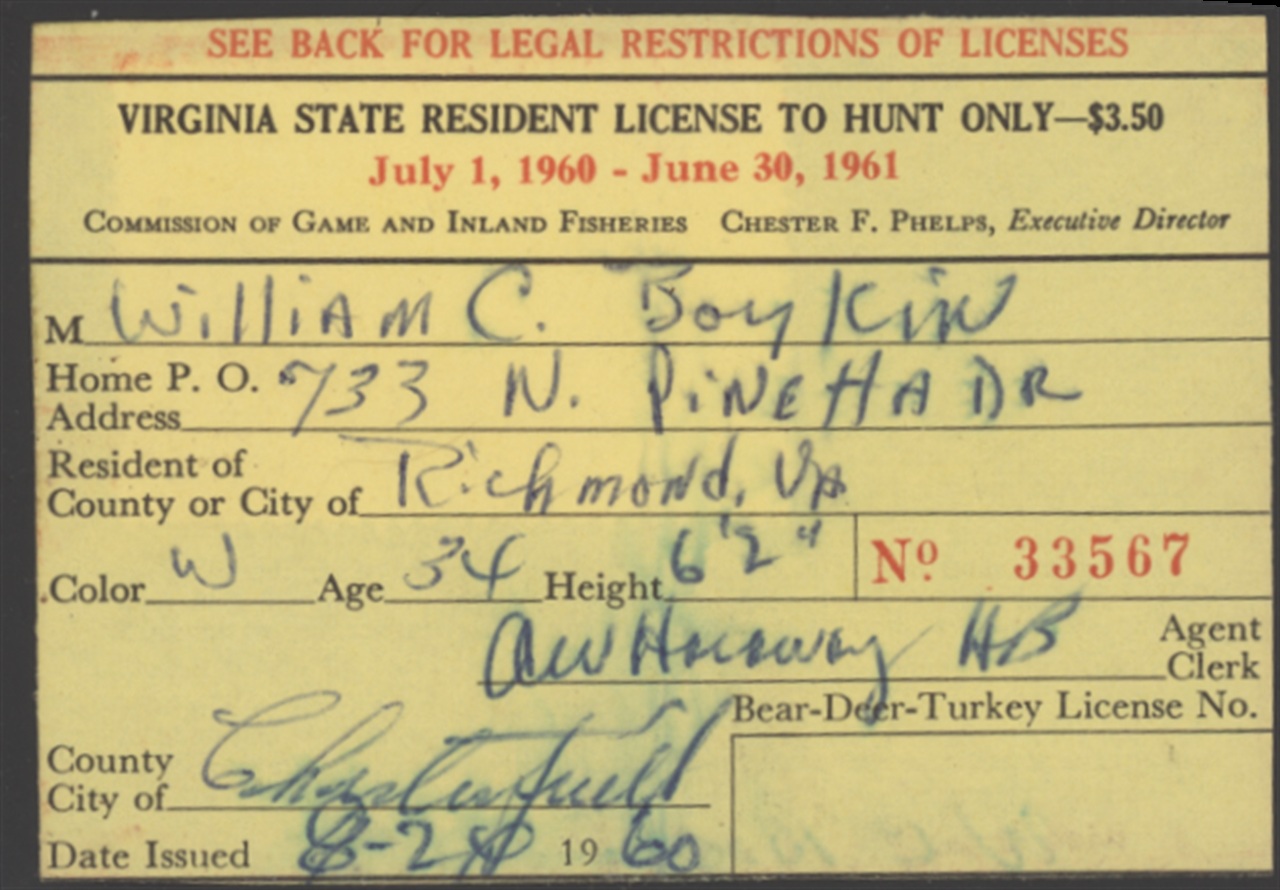 SEE BACK FOR LEGAL RESTRICTIONS OF LICENSES
VIRGINIA STATE RESIDENT LICENSE TO HUNT ONLY—$3.50
July 1, 1960 - June 30, 1961
COMMISSION OF GAME AND INLAND FISHERIES CHESTER F. PHELPS, Executive Director
M William C. Boykin
Home P. O. Address 733 N. PiNEttA DR
Resident of County or City of Richmond, VA
Color W Age 34 Height 6'2" Nº 33567
HB Agent Clerk
Bear-Deer-Turkey License No.
County City of Chesterfield
Date Issued 8-28 1960